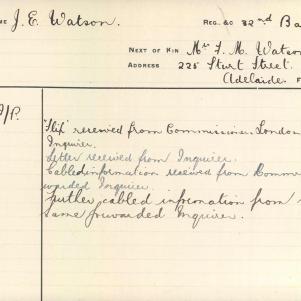 ME J. E. Watson. REG. &C 32nd Ba
NEXT OF KIN Mrs F. M. Watson
ADDRESS 225 Sturt Street.
Adelaide. F
/P. received from Commissioner London
Inquirer.
Letter received from Inquirer.
Cabled information received from Comm
warded Inquirer.
Further cabled information from
Same forwarded Inquirer.